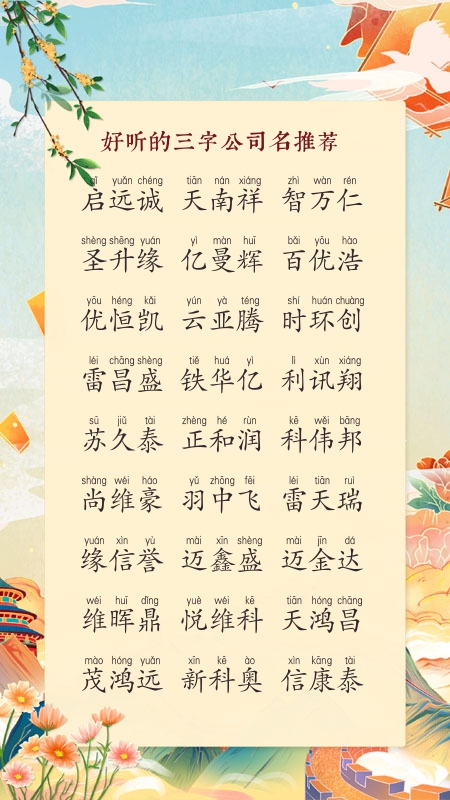 好听的三字公司名推荐
qǐ yuǎn chéng tiān nán xiáng zhì wàn rén
启远诚 天南祥 智万仁
shèng shēng yuán yì màn huī bǎi yōu hào
圣升缘 亿曼辉 百优浩
yōu héng kǎi yún yà téng shí huán chuàng
优恒凯 云亚腾 时环创
léi chāng shèng tiě huá yì lì xùn xiáng
雷昌盛 铁华亿 利讯翔
sū jiǔ tài zhèng hé rùn kē wěi bāng
苏久泰 正和润 科伟邦
shàng wéi háo yǔ zhōng fēi léi tiān ruì
尚维豪 羽中飞 雷天瑞
yuán xìn yù mài xīn shèng mài jīn dá
缘信誉 迈鑫盛 迈金达
wéi huī dǐng yuè wéi kē tiān hóng chāng
维晖鼎 悦维科 天鸿昌
mào hóng yuǎn xīn kē ào xìn kāng tài
茂鸿远 新科奥 信康泰